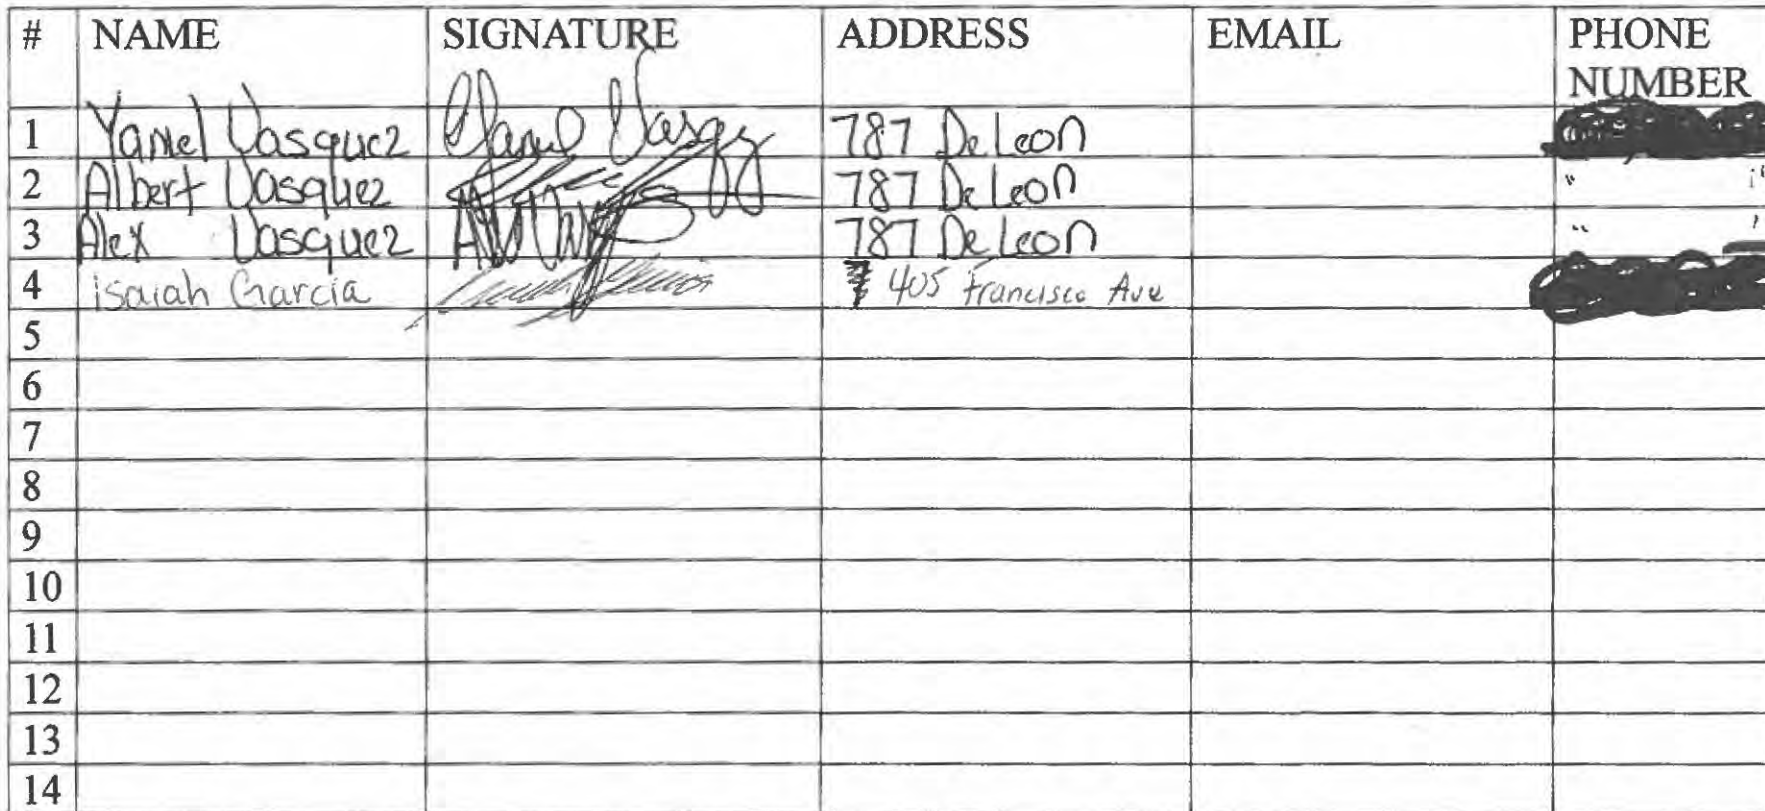 # NAME SIGNATURE ADDRESS EMAIL PHONE
NUMBER
1 Yamel Vasquez Yamel Vasqz 787 De Leon
2 Albert Vasquez 787 De Leon " "
3 Alex Vasquez 787 De Leon " "
4 isaiah Garcia 405 Francisco Ave
5
6
7
8
9
10
11
12
13
14